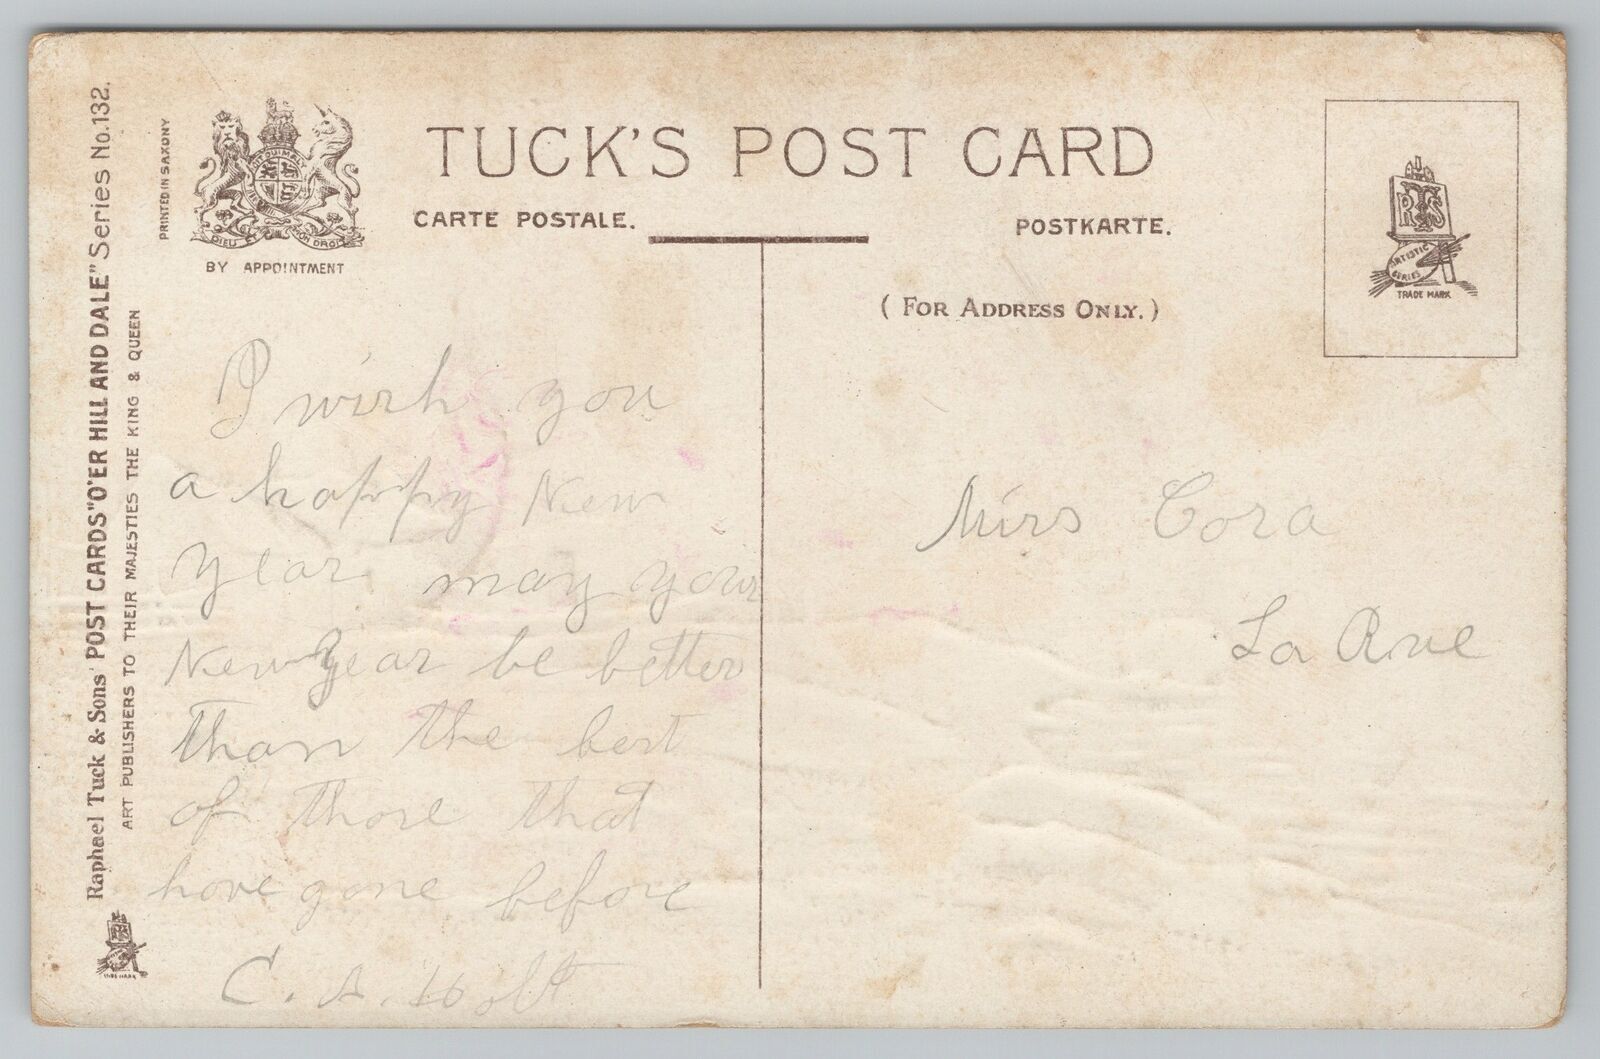 TUCK'S POST CARD
CARTE POSTALE.
POSTKARTE.
(FOR ADDRESS ONLY.)
PRINTED IN SAXONY
DIEU ET MON DROIT
BY APPOINTMENT
Raphael Tuck & Sons' POST CARDS "O'ER HILL AND DALE" Series No. 132.
ART PUBLISHERS TO THEIR MAJESTIES THE KING & QUEEN
RTS
ARTISTIC
SERIES
TRADE MARK
I wish you
a happy New
Year may your
New Year be better
than the best
of those that
have gone before
C. A. Holt
Miss Cora
La Rue
TRADE MARK